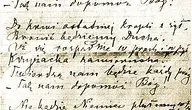 Tak nam dopomóż Bóg!
Do krwi ostatniej kropli z żył
Bronić będziemy Ducha
Aż się rozpadnie w proch i pył
Krzyżacka zawierucha.
Twierdzą nam będzie każdy próg
Tak nam dopomóż Bóg!
Nie będzie Niemiec pluł